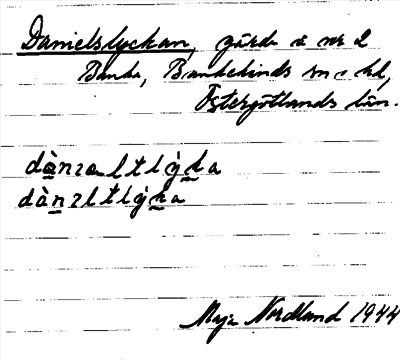 Danielslyckan, gärde å nr 2
Banka, Bankekinds sn o hd,
Östergötlands län.
dànzaltlýka
dànzltlýka
Maja Nordlund 1944